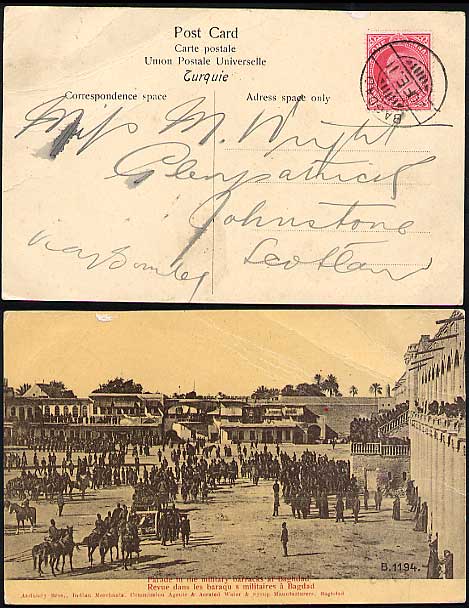 Post Card
Carte postale
Union Postale Universelle
Turquie
Correspondence space
Adress space only
BAGDAD
Miss M. Wright
Glenpatrick
Johnstone
Scotland
via Bombay
Parade in the military barracks at Baghdad
Revue dans les baraqu s militaires à Bagdad
B.1194.
Indian Merchants, Commission Agents & Aerated Water & Syrup Manufacturers, Baghdad